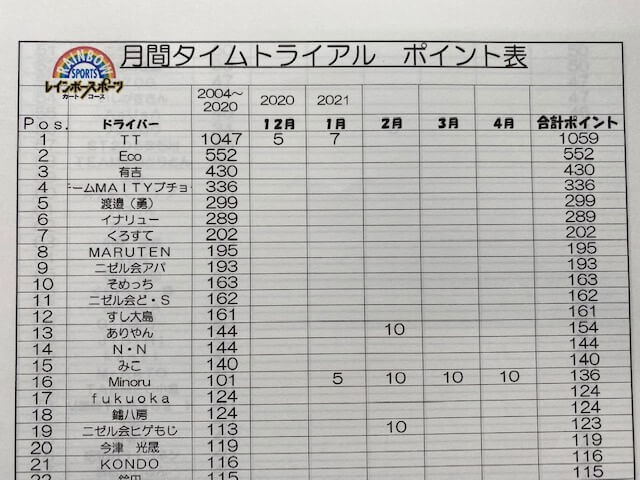 月間タイムトライアル ポイント表
RAINBOW
SPORTS
レインボースポーツ
カートコース
2004～ 2020 2021
2020
Pos. ドライバー 12月 1月 2月 3月 4月 合計ポイント
1 TT 1047 5 7 1059
2 Eco 552 552
3 有吉 430 430
4 チームMAITYプチョ 336 336
5 渡邉(勇) 299 299
6 イナリュー 289 289
7 くろすて 202 202
8 MARUTEN 195 195
9 ニゼル会アパ 193 193
10 そめっち 163 163
11 ニゼル会ど・S 162 162
12 すし大島 161 161
13 ありやん 144 10 154
14 N・N 144 144
15 みこ 140 140
16 Minoru 101 5 10 10 10 136
17 fukuoka 124 124
18 八房 124 124
19 ニゼル会ヒゲもじ 113 10 123
20 今津 光晟 119 119
21 KONDO 116 116
22 115 115